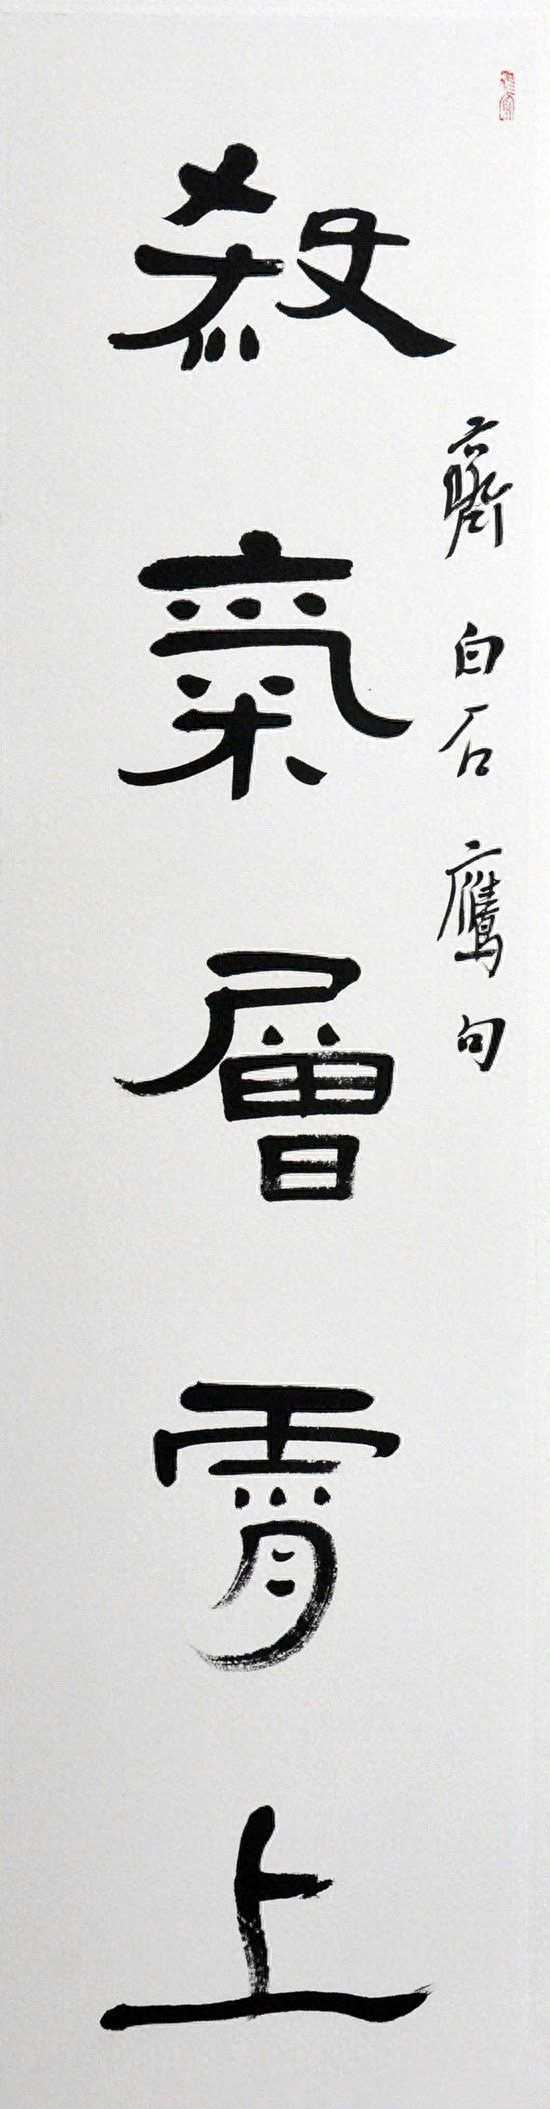 齊白石鷹句
殺氣層霄上